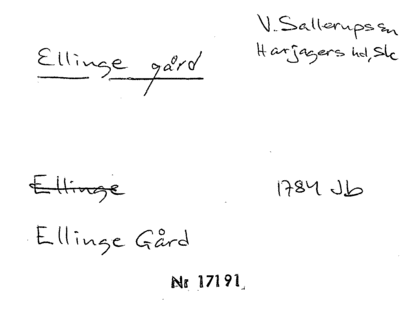 V. Sallerups sn
Ellinge gård Harjagers hd, Sk
Ellinge 1784 Jb
Ellinge Gård
Nr 17191